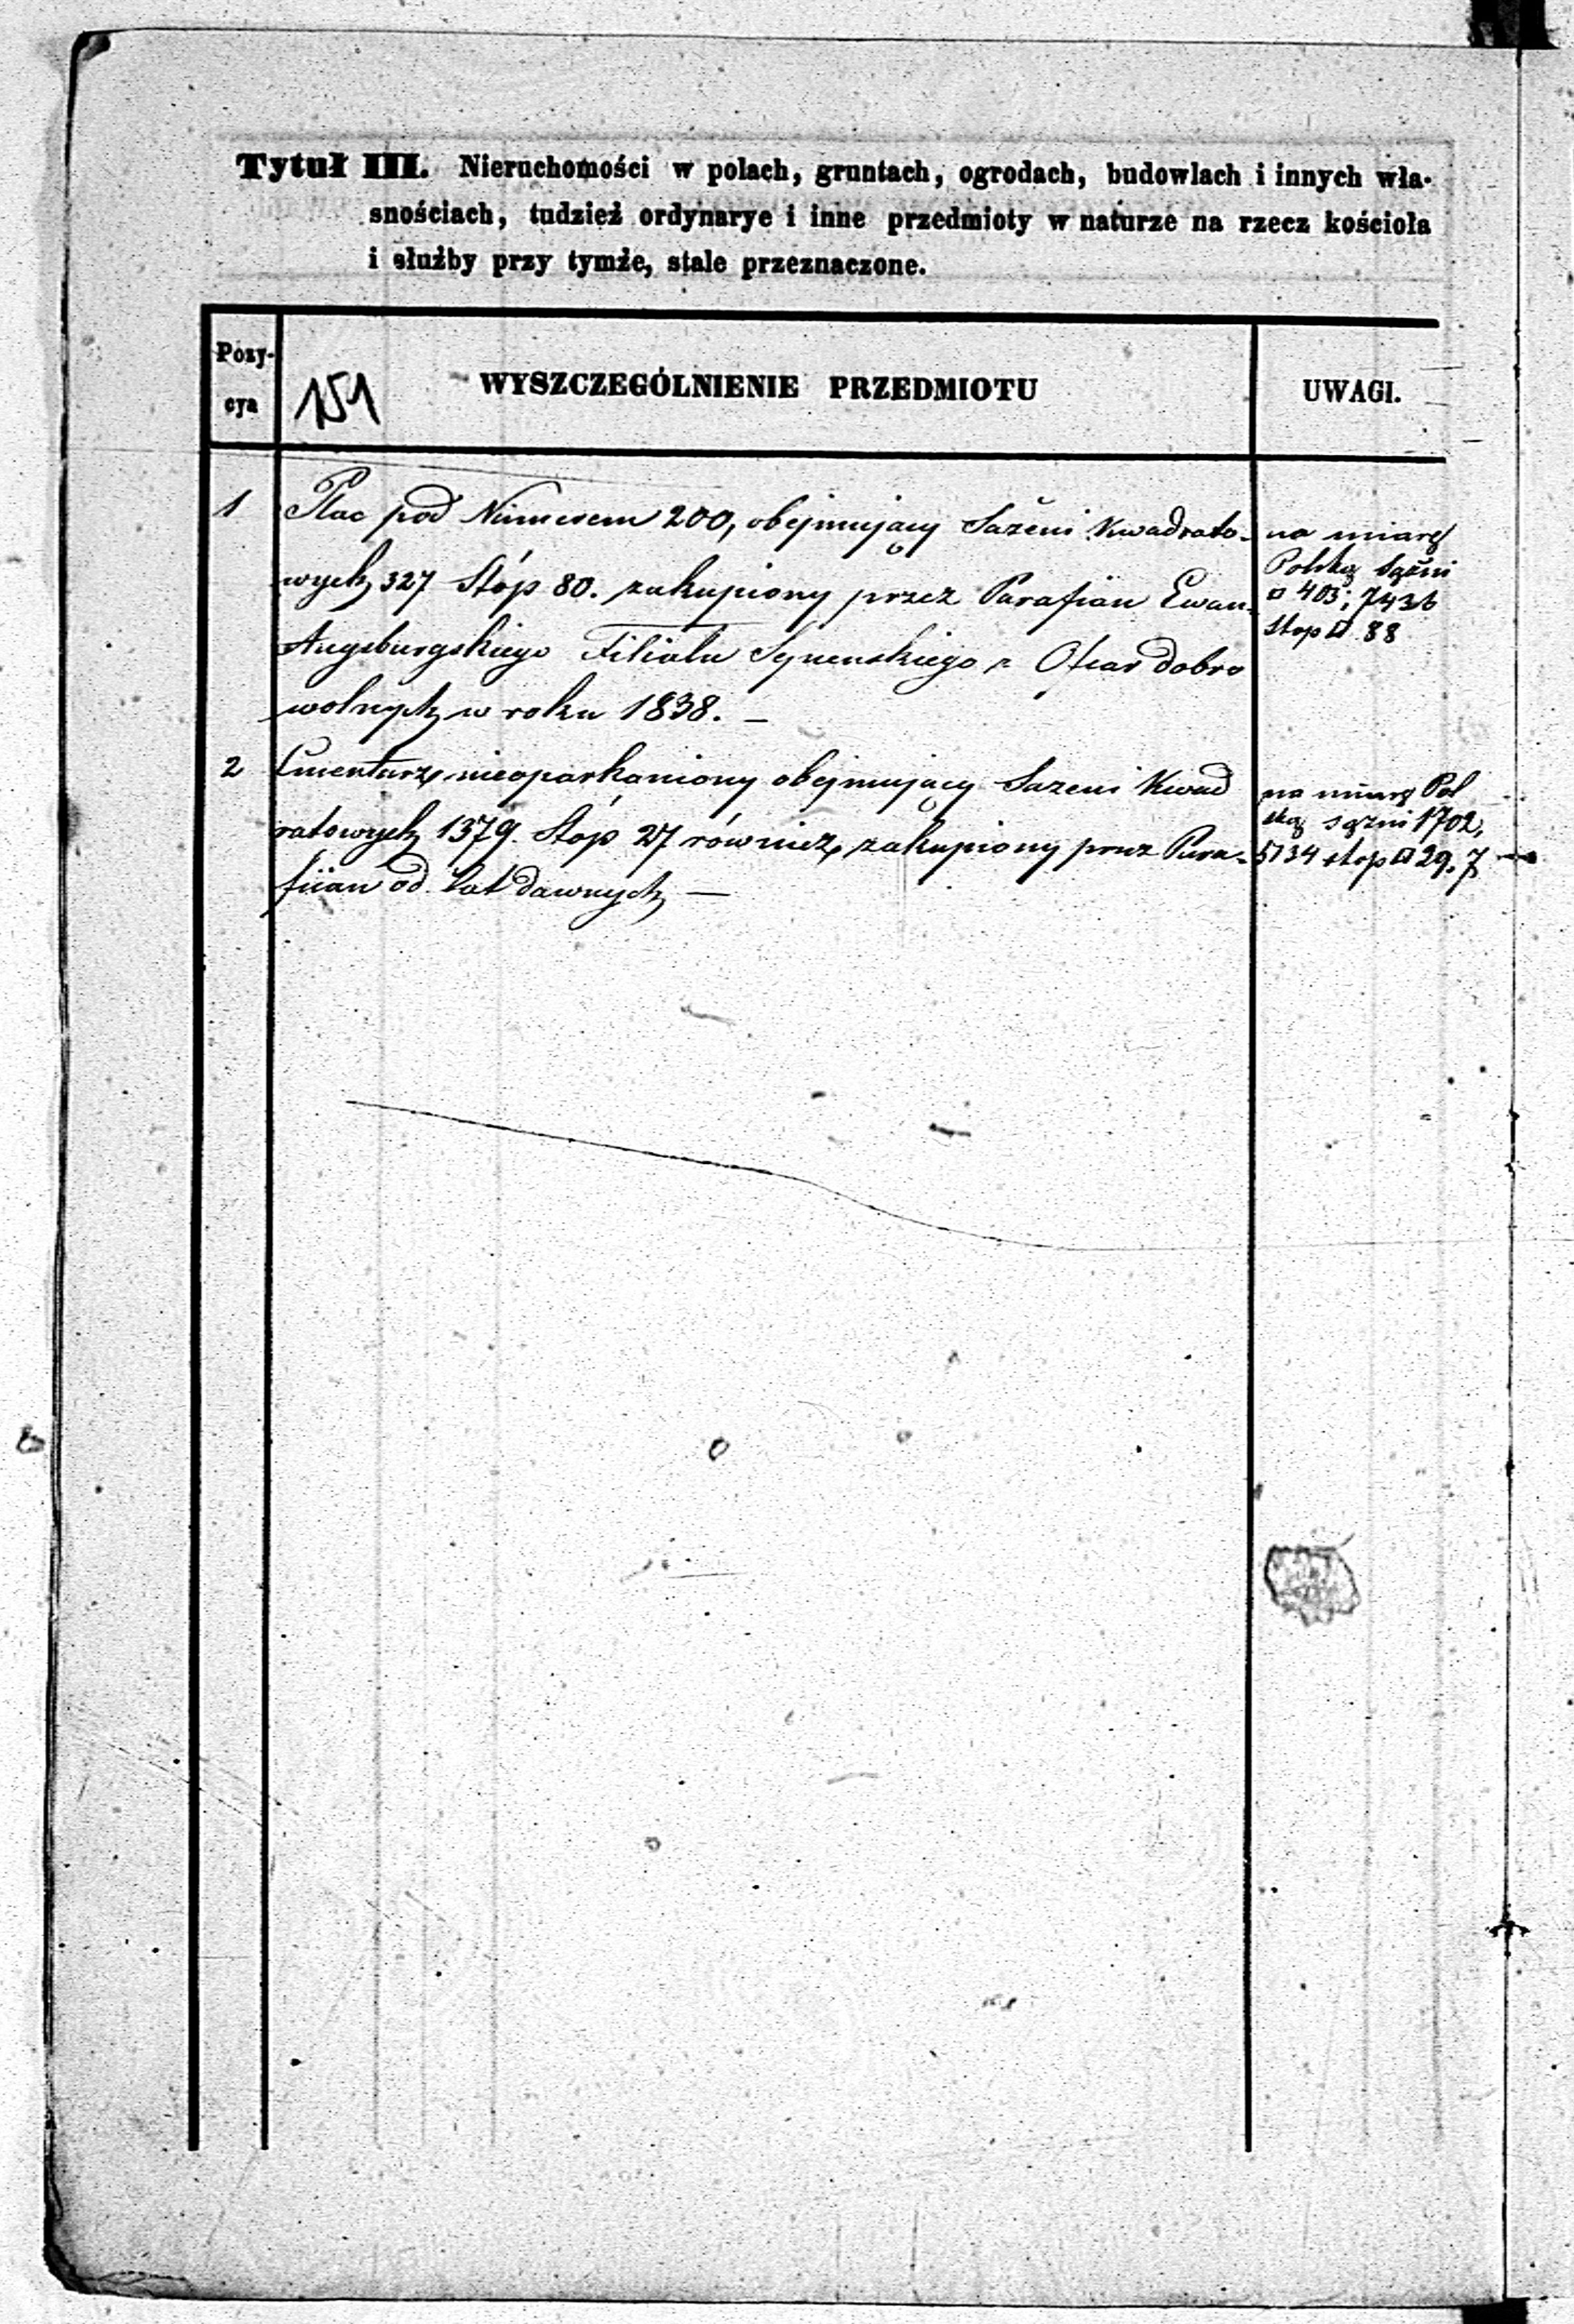 Tytuł III. Nieruchomości w polach, gruntach, ogrodach, budowlach i innych wła-
snościach, tudzież ordynarye i inne przedmioty w naturze na rzecz kościoła
i służby przy tymże, stale przeznaczone.
Pozy-
cya
151
WYSZCZEGÓLNIENIE PRZEDMIOTU
UWAGI.
1 Plac pod Numerem 200, obejmujący Sażeni Kwadrato-
wych 327 Stóp 80. zakupiony przez Parafian Ewan-
Augsburgskiego Filialu z Ofiar dobro
wolnych w roku 1838. —
na miarę
Polską sążni
□ 403; 7436
stop □ 88
2 Cmentarz nieoparkaniony obejmujący Sazeni Kwad
ratowych 1379. Stóp 27 również zakupiony przez Para-
fiian od lat dawnych —
na miarę Pol
ską sążni 1702,
5134 stop □ 29.7